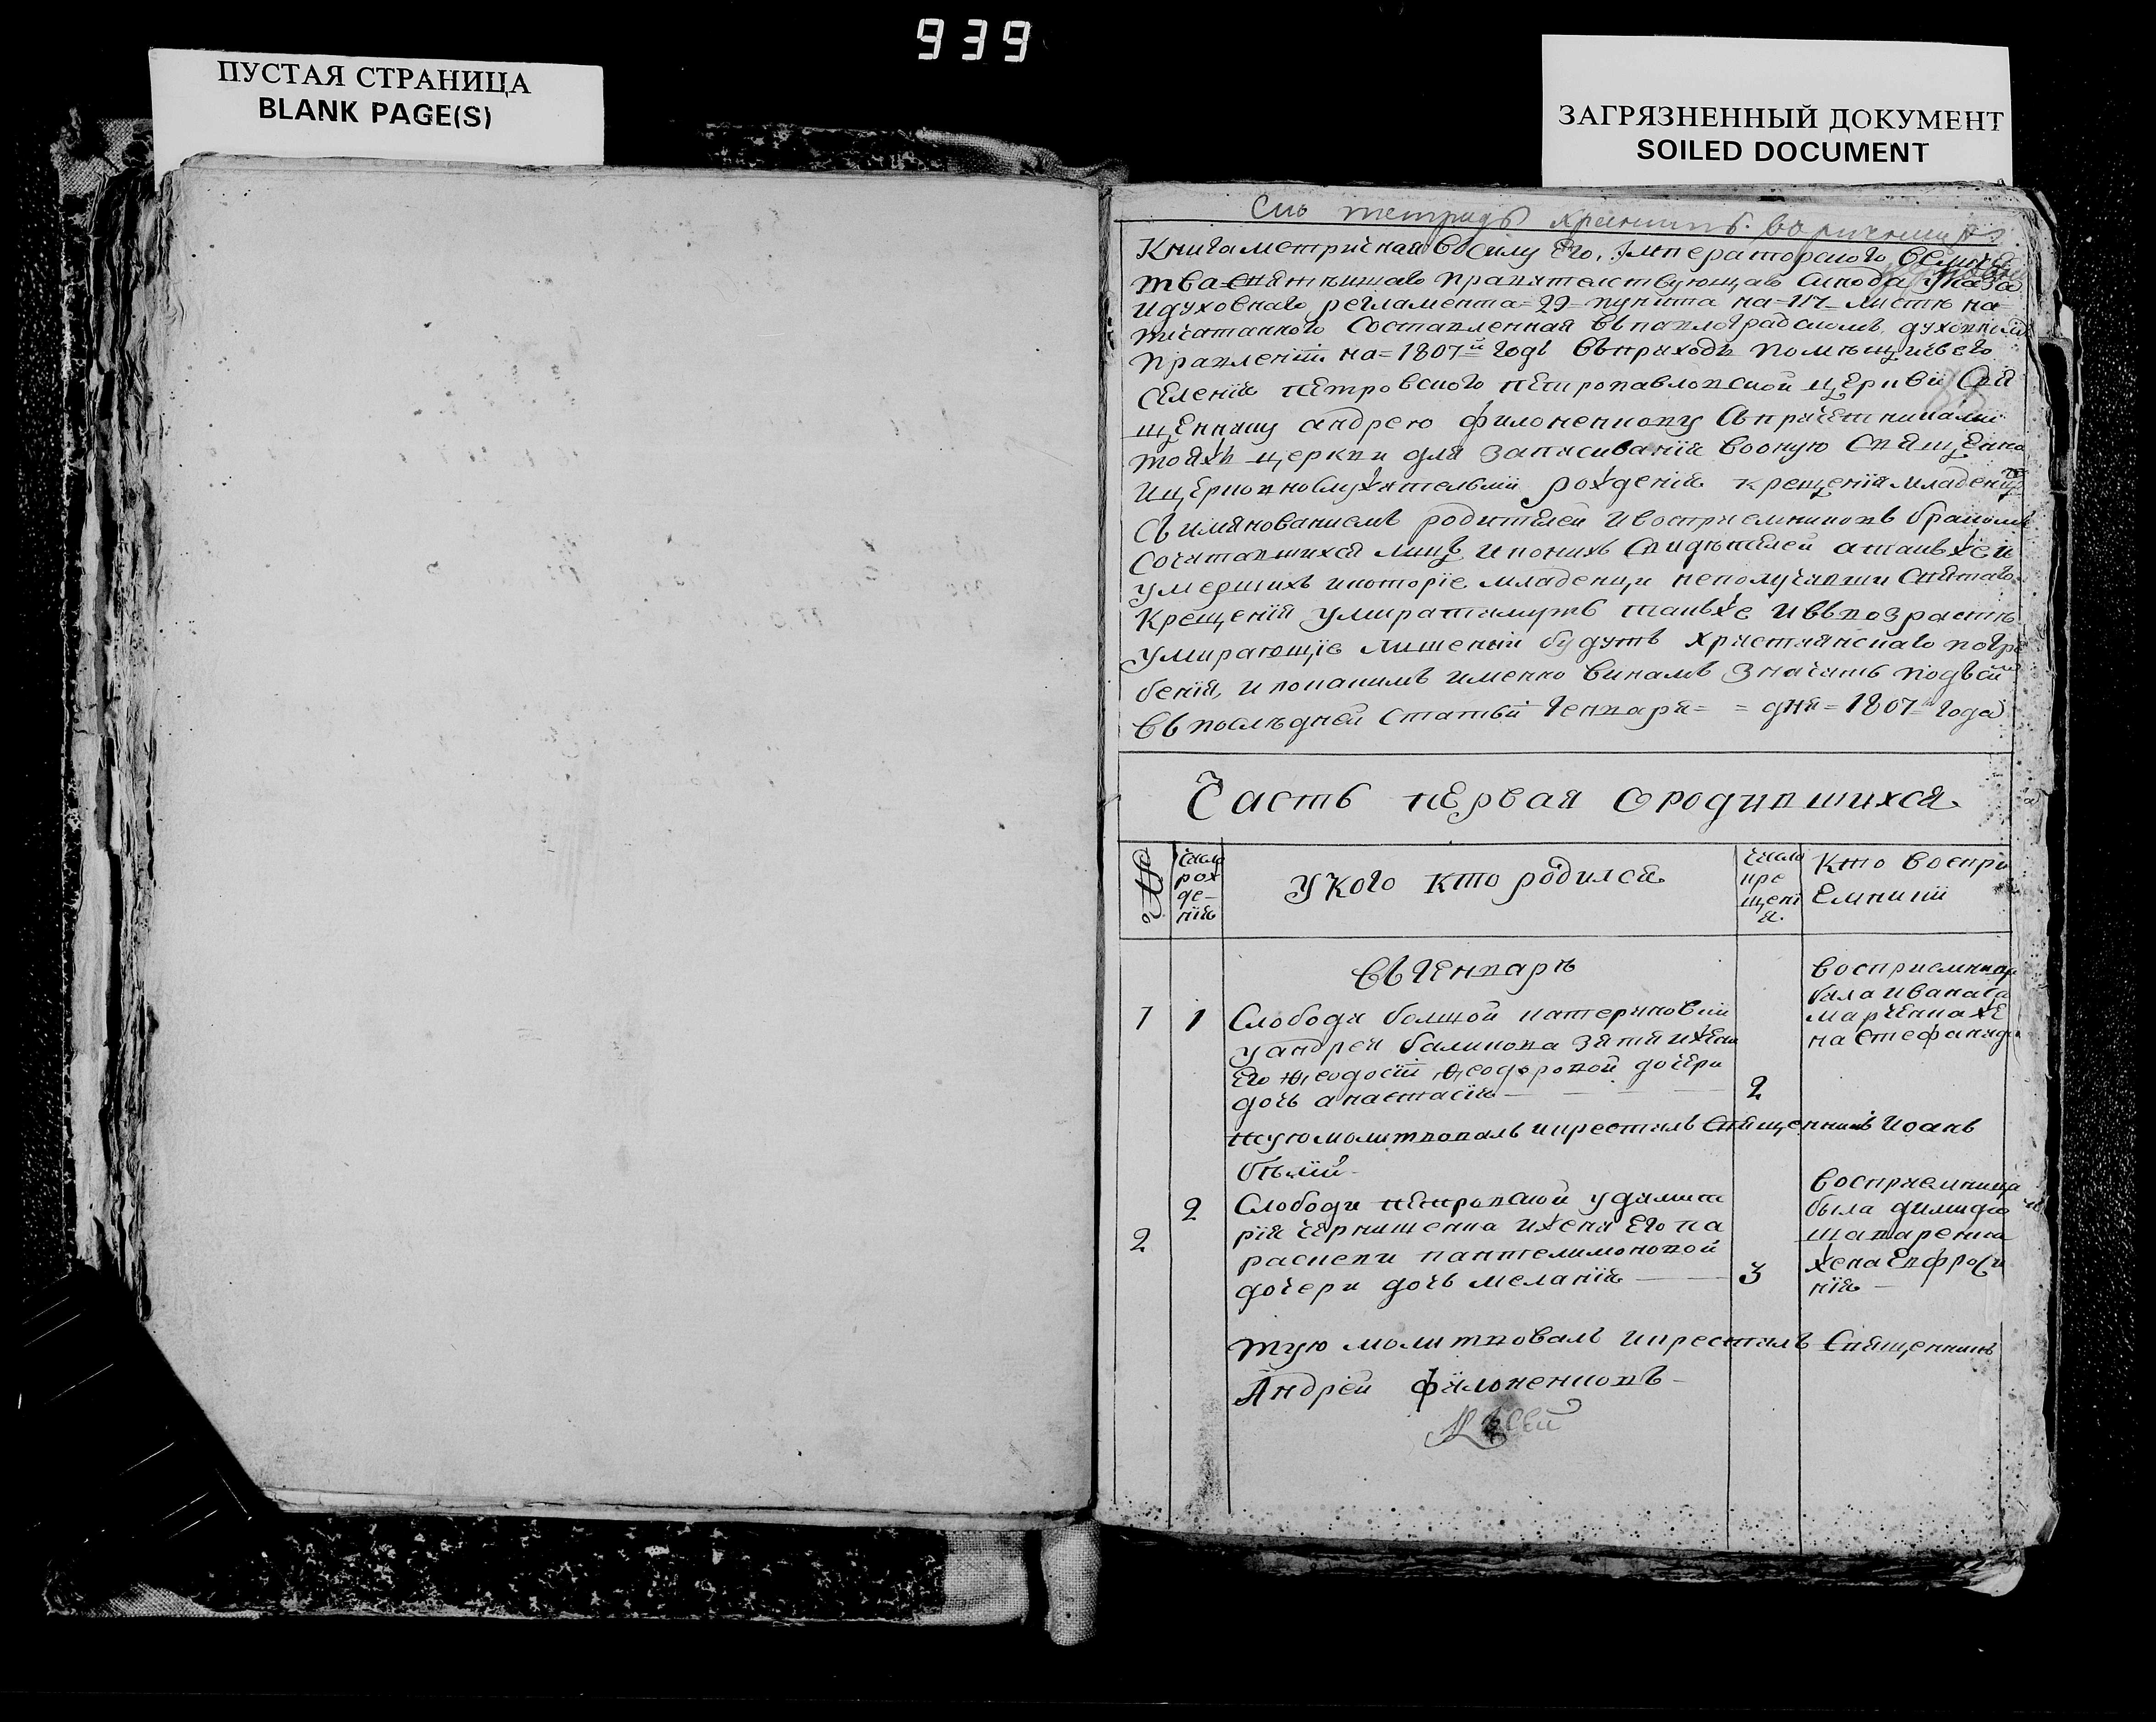 939
ПУСТАЯ СТРАНИЦА
BLANK PAGE(S)
ЗАГРЯЗНЕННЫЙ ДОКУМЕНТ
SOILED DOCUMENT
Сию тетрадь хранить
Книга метричная всилу Его, Императорского Величес
тва святейшаго правителствующаго Синода указа
идуховнаго регламента = 29 = пункта на = листе на
печатанного Составленная въ павлоградскомъ духовномъ
правленїи на = 1807й годъ въ приходъ помещичьего
Селенїя петровского петропавловской церкви Свя
щеннику андрею филоненкову съ причетниками
тояжъ церкви для записыванїя вооную Священно
ицерковнослужительми рожденїя крещенїя младенцевъ
Съ имянованиемъ родителей ивосприемниковъ бракомъ
Сочитавшихся лицъ и поних Свидетелей атакъже и
умершихъ икоторїе младенци неполучивши Святаго
Крещенїя умирать имутъ такъже ивъ возрасте
умирающїе лишены будутъ христианскаго погре
бенїя, и по какимъ именно винамъ значить подъ сим
Въ последней Статьи Генваря = = дня = 1807 года
Часть первая ородившихся
№
Число рож де- нїя
У кого кто родился
Число кре щенї я.
Кто воспри Емники
Въ Генваре
1
1
Слободи болшой катериновки
у андрея Калинова зятя ижени
Его Ѳеодосїи Ѳеодоровой дочери
дочь анастасїя
2
восприемница
била Ивана
Марченка же
на Стефанида
Тую молитвовалъ икрестилъ Священникъ Иоанъ
белїй
2
2
Слободи Петровской у дими
рїя Чернишенка ижени Его па
раскеви пантелимоновой
дочери дочь меланїя
3
восприемница
была
жена Евфроси
нїя
тую молитвовалъ икрестилъ Священникъ
Андрей Филоненковъ